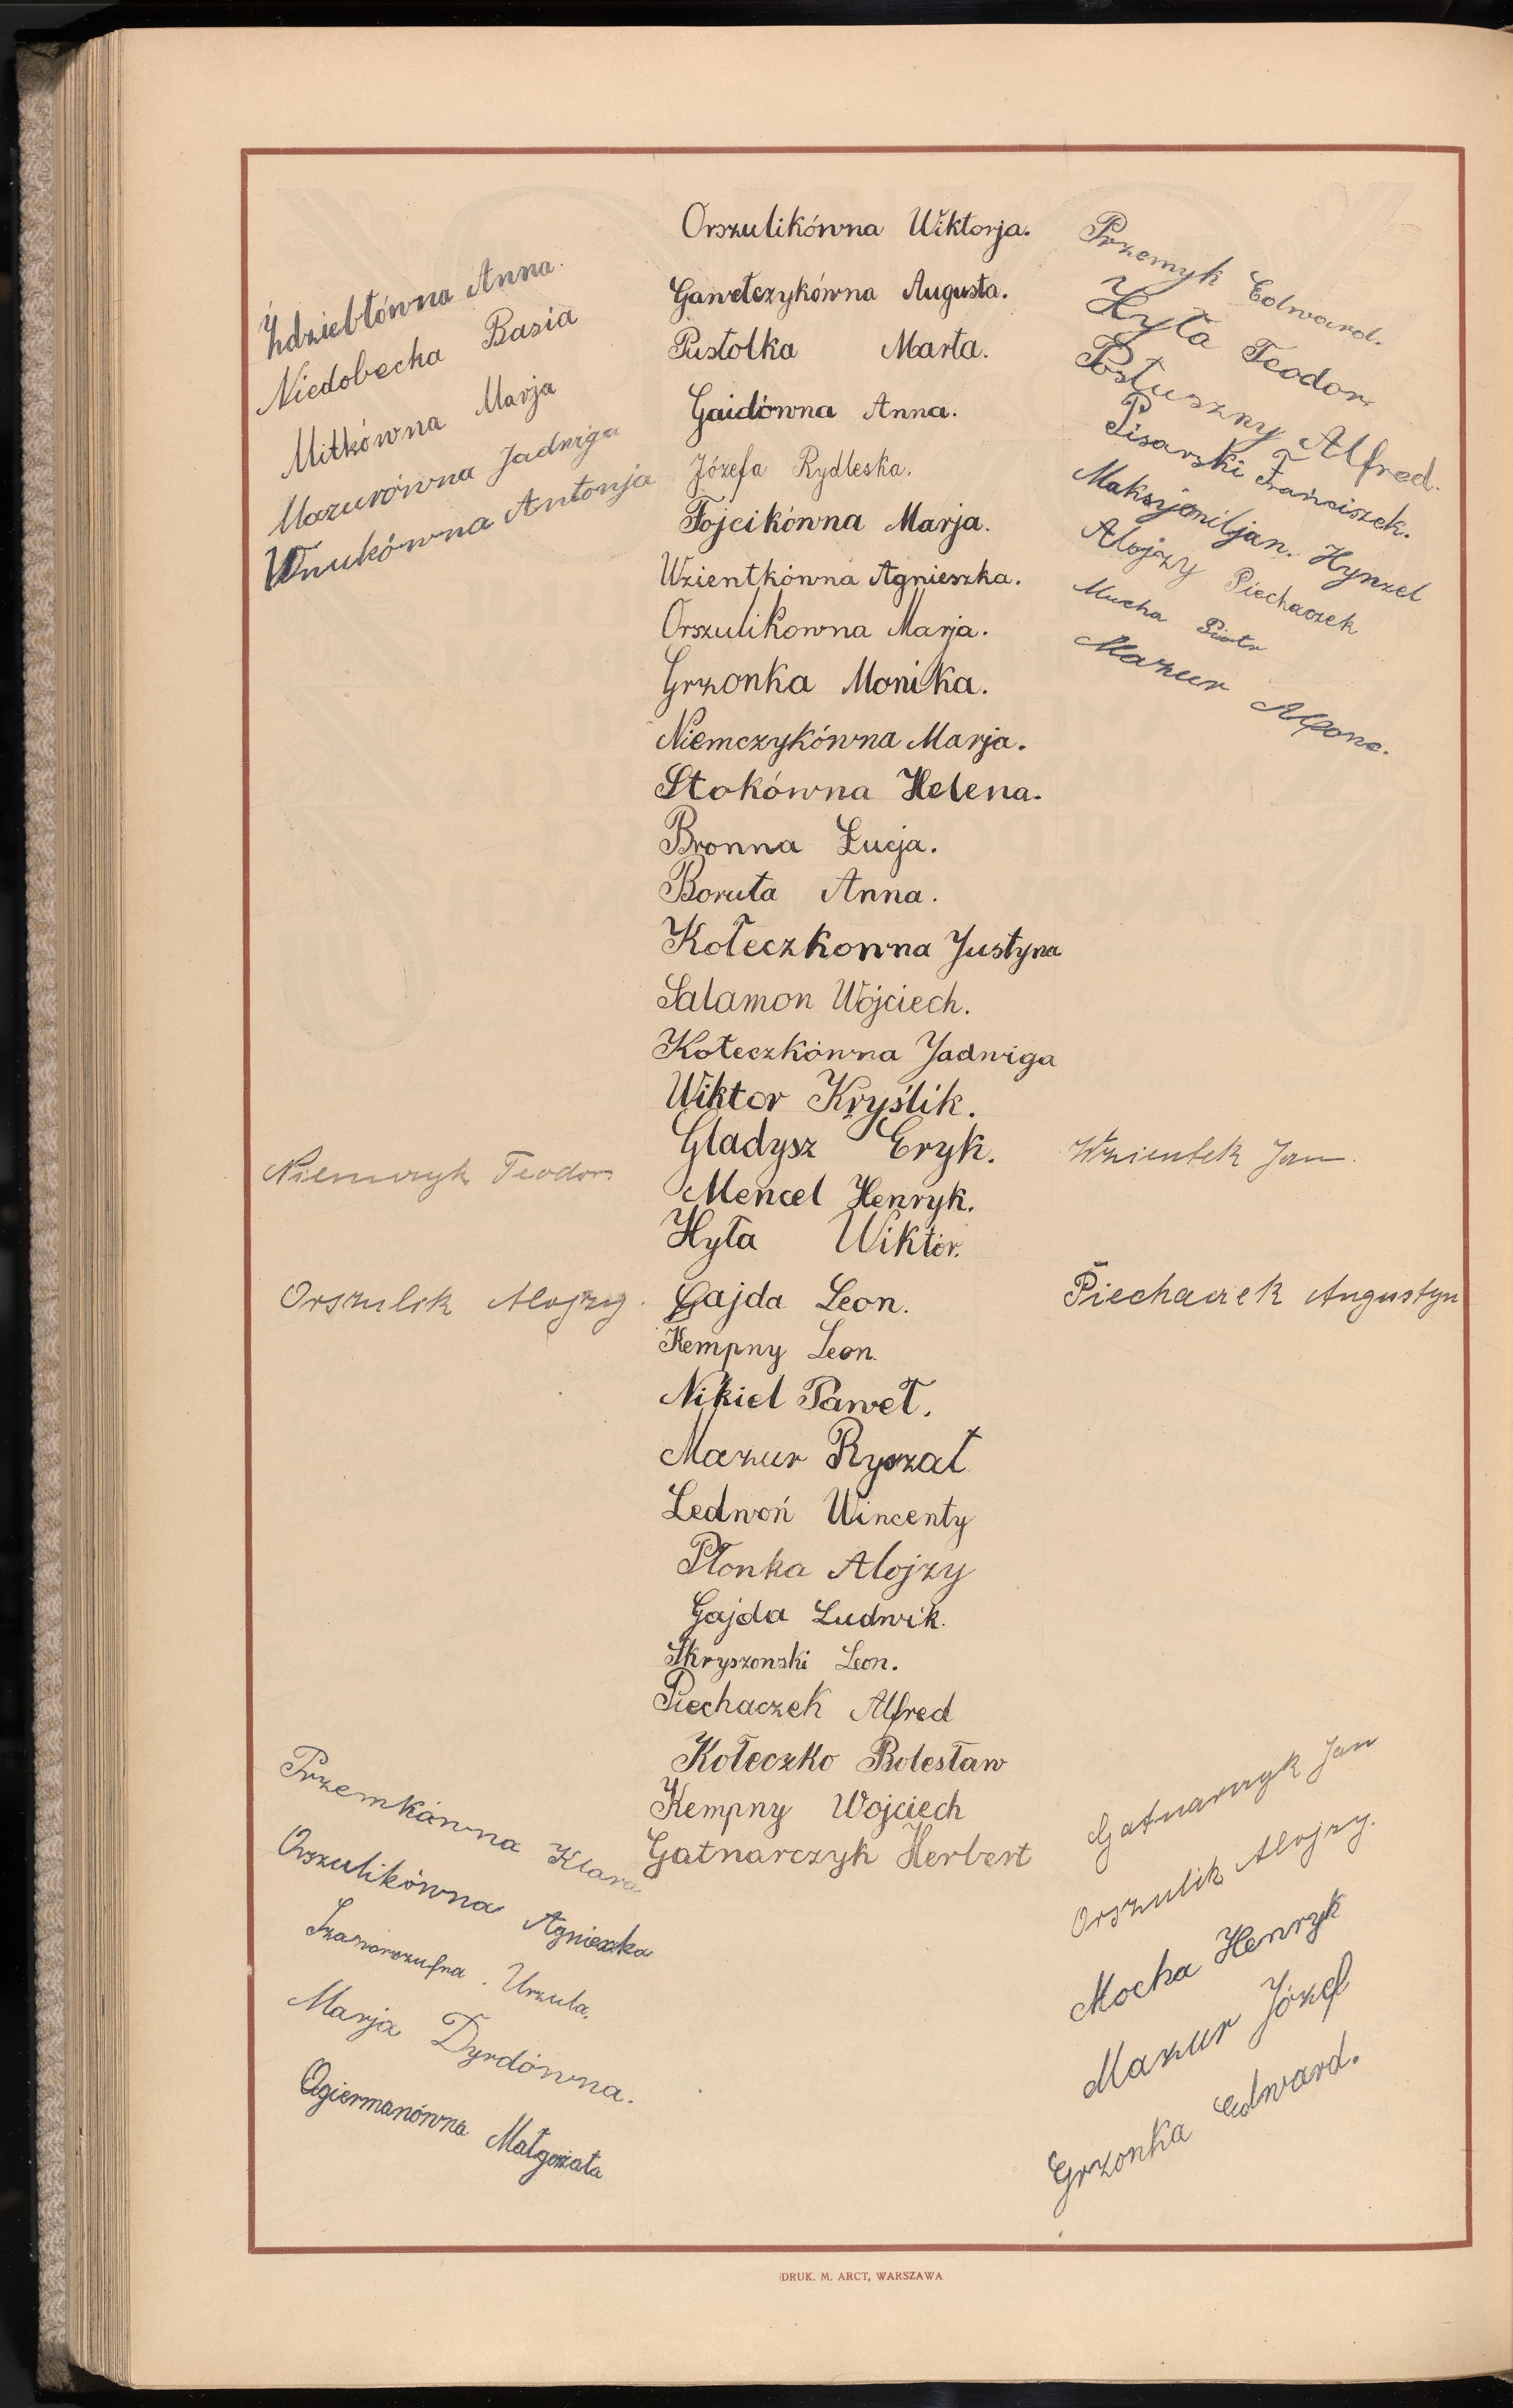 Ździebłówna Anna.
Niedobecka Basia
Mitkówna Marja
Mazurówna Jadwiga
Wnukówna Antonja
Orszulikówna Wiktorja.
Gawełczykówna Augusta.
Pustolka Marta.
Gaidówna Anna.
Józefa Rydleska.
Fojcikówna Marja.
Wzientkówna Agnieszka.
Orszulikowna Marja.
Grzonka Monika.
Niemczykówna Marja.
Stokówna Helena.
Bronna Łucja.
Boruta Anna.
Kołeczkowna Justyna
Salamon Wojciech.
Kołeczkówna Jadwiga
Wiktor Kryślik.
Gladysz Eryk.
Mencel Henryk.
Hyła Wiktor.
Gajda Leon.
Kempny Leon.
Nikiel Paweł.
Mazur Ryszat
Ledwoń Wincenty
Płonka Alojzy
Gajda Ludwik.
Skryszonski Leon.
Piechaczek Alfred
Kołeczko Bolesław
Kempny Wojciech
Gatnarczyk Herbert
Przemyk Edward.
Hyła Teodor.
Posłuszny Alfred.
Pisarski Franciszek.
Maksyjmiljan. Hynzel
Alojzy Piechaczek
Mucha Piotr
Mazur Alfons.
Niemczyk Teodor.
Orszulik Alojzy.
Wzientek Jan.
Piechaczek Augustyn
Przemkówna Klara
Orszulikówna Agnieszka
Urzula.
Marja Dyrdówna.
Ogiermanówna Małgorzata
Gatnarczyk Jan
Orszulik Alojzy.
Mocha Henryk
Mazur Józef
Grzonka Edward.
DRUK. M. ARCT, WARSZAWA